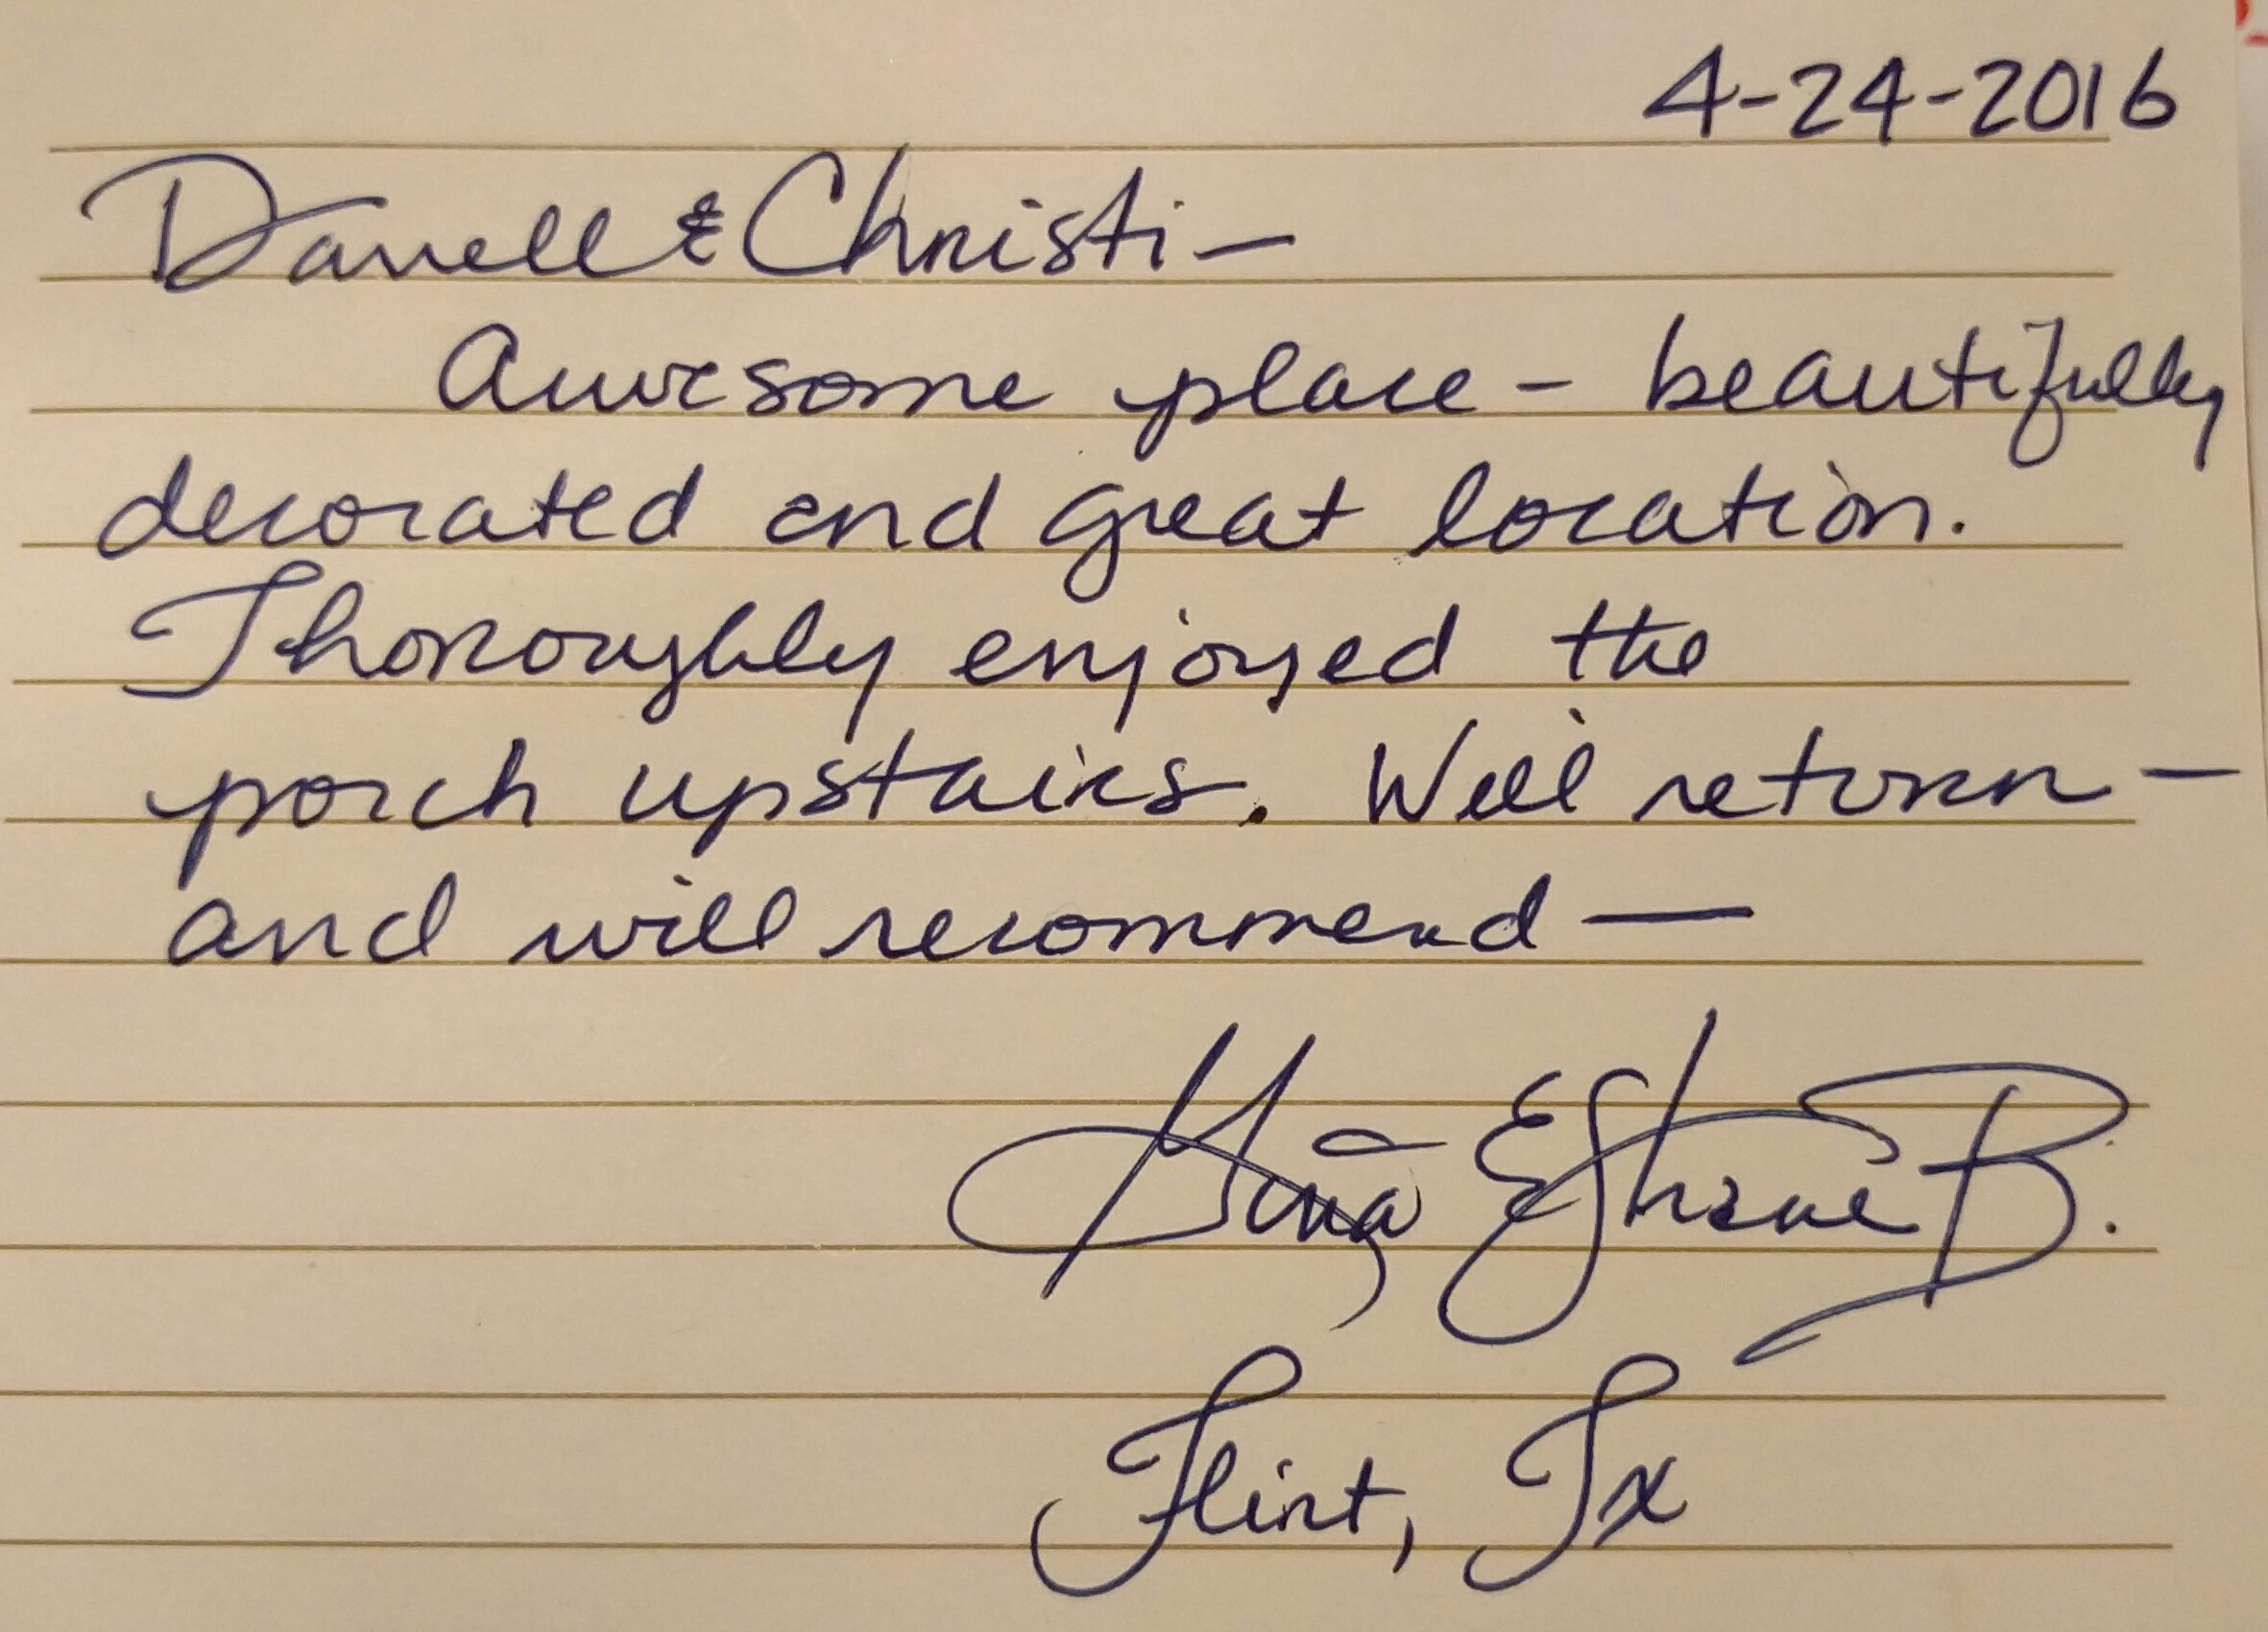 4-24-2016
Darrell & Christi -
Awesome place - beautifully
decorated and great location.
Thoroughly enjoyed the
porch upstairs. Will return -
and will recommend —
Gina & Shane B.
Flint, Tx